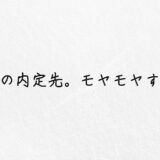 の内定先。モヤモヤす